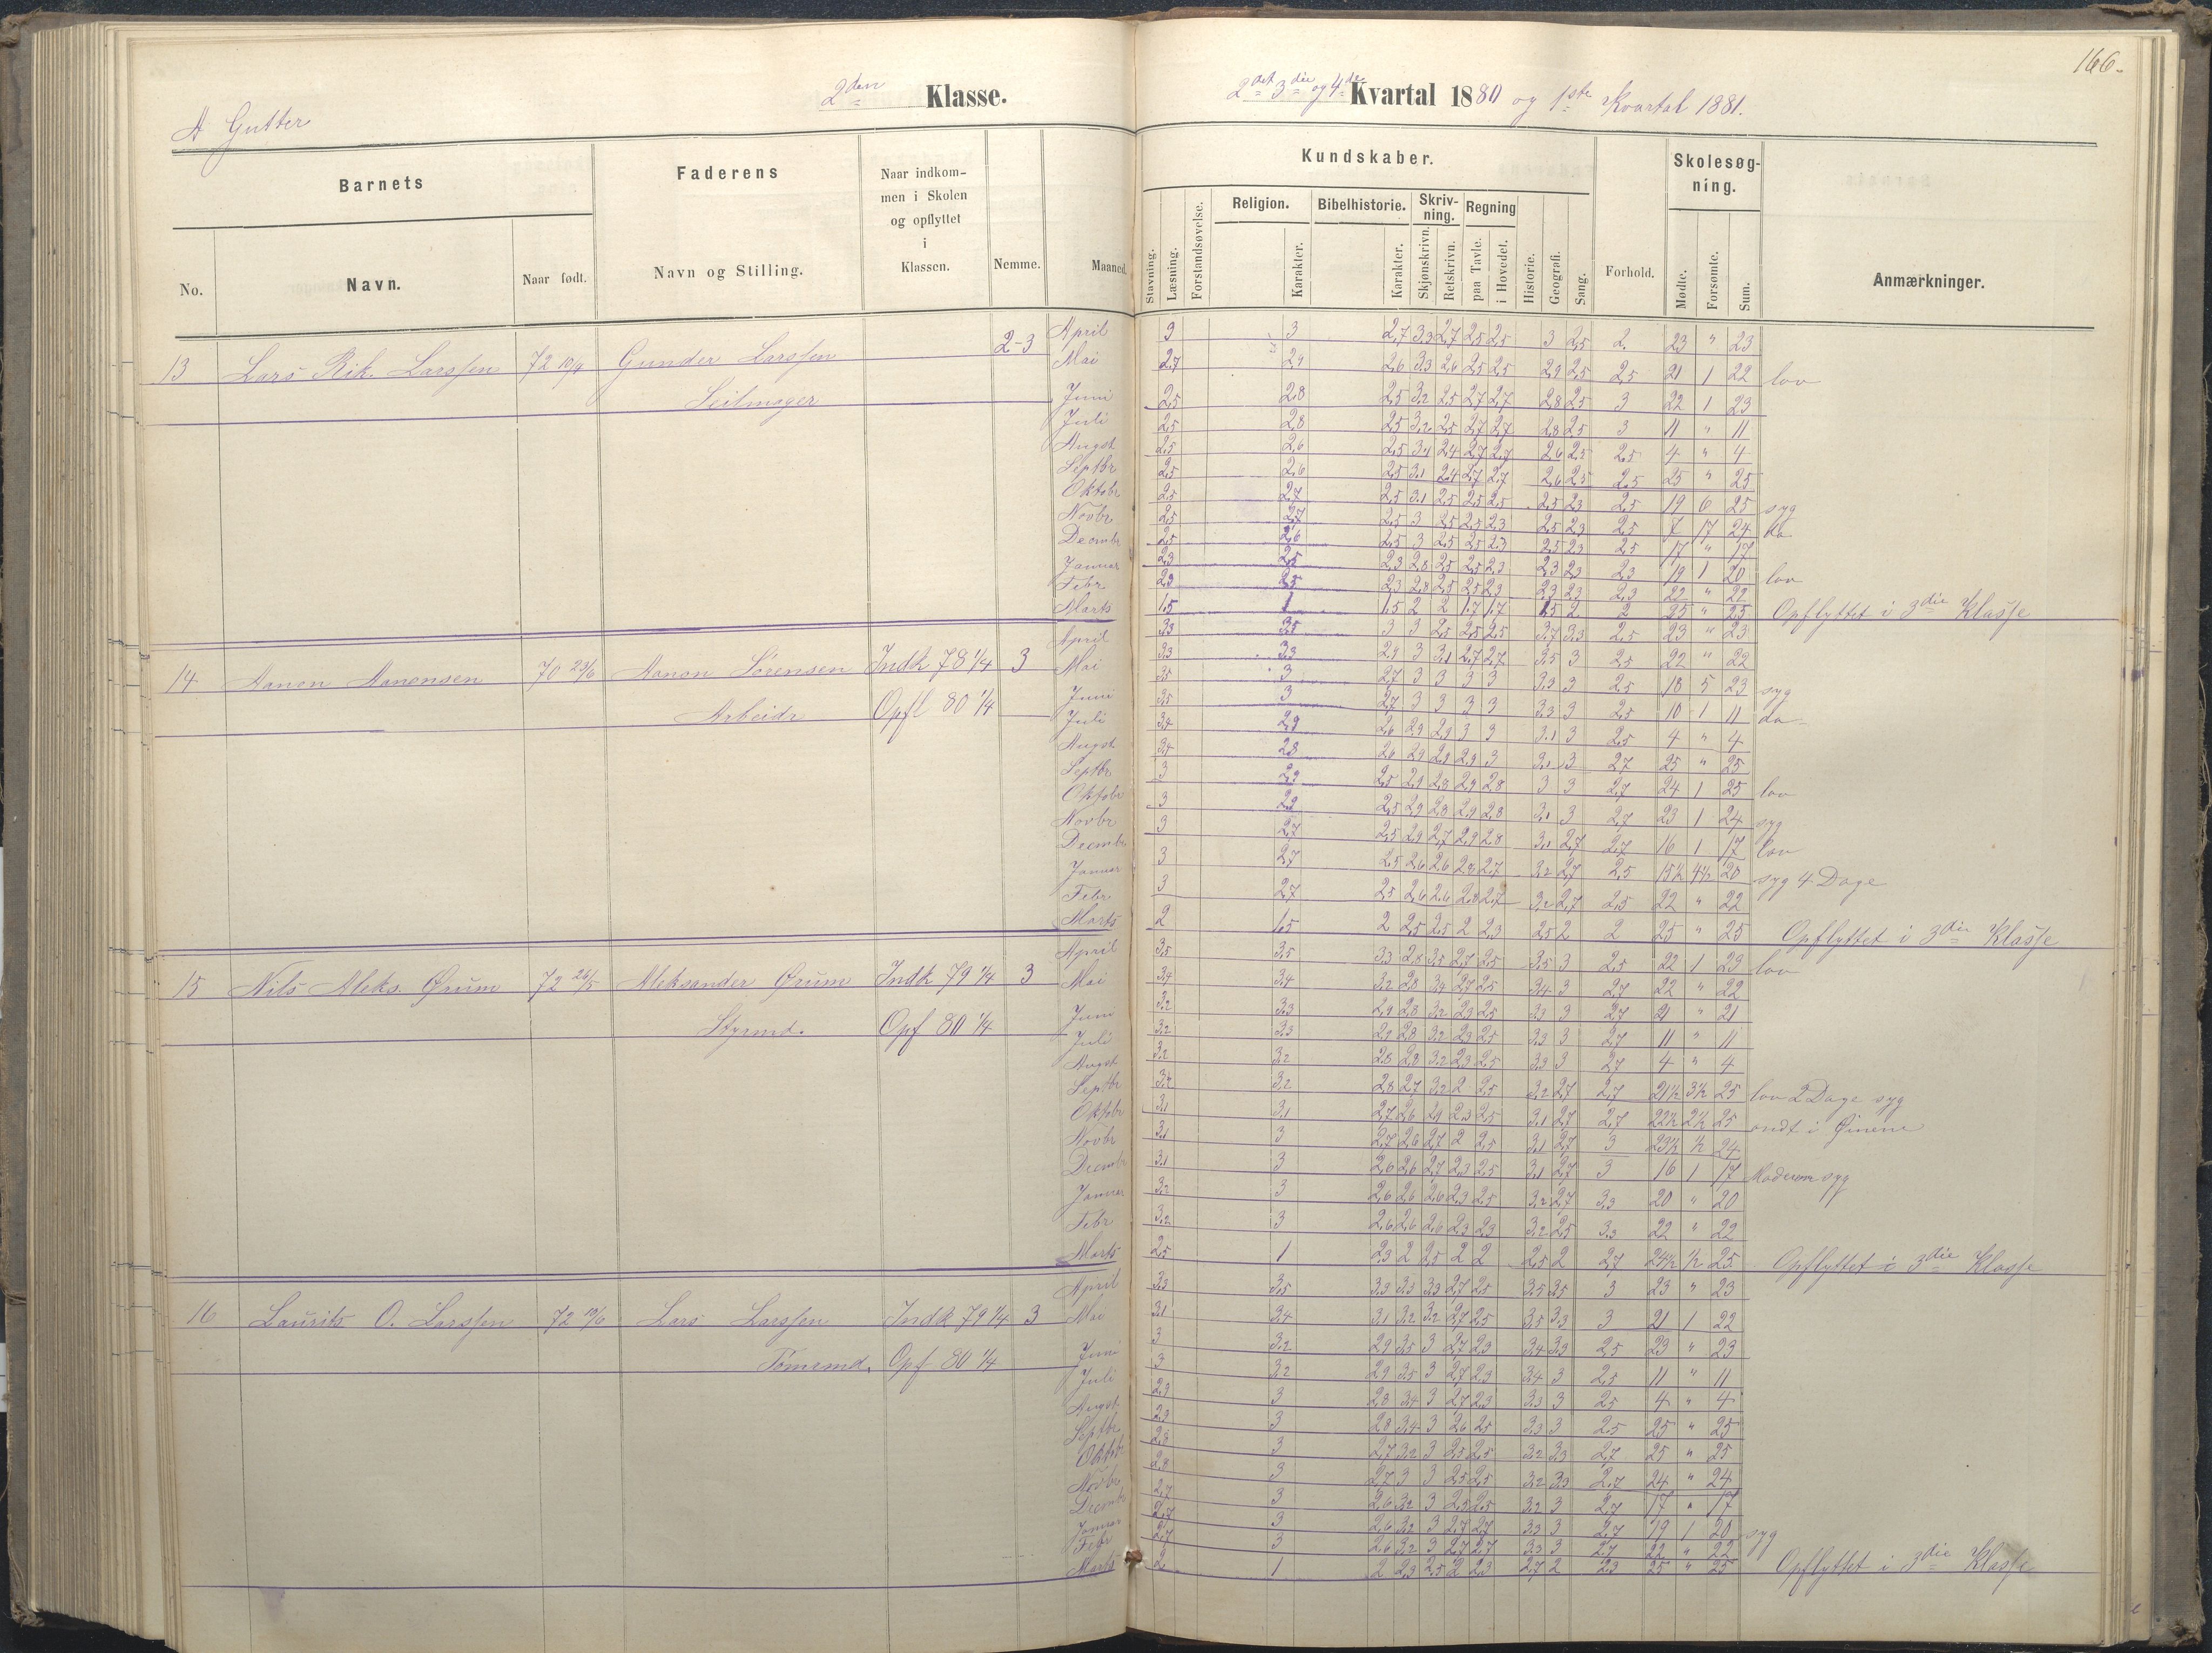 166.
A Gutter
2den Klasse.
2det 3die og 4de Kvartal 1880 og 1ste Kvartal 1881.
Barnets
Faderens
Naar indkommen i Skolen og opflyttet i Klassen.
Nemme.
Maaned.
No.
Navn.
Naar født.
Navn og Stilling.
Kundskaber.
Stavning.
Læsning.
Forstandsøvelse.
Religion.
Karakter.
Bibelhistorie.
Karakter.
Skrivning.
Skjønskrivn.
Retskrivn.
Regning
paa Tavle.
i Hovedet.
Historie.
Geografi.
Sang.
Forhold.
Skolesøgning.
Mødte.
Forsømte.
Sum.
Anmærkninger.
13 Lars Rik. Larssen 72 19/4 Gunder Larssen 2-3
Seilmager
April 3 3 2,7 3,3 2,7 2,5 2,5 3 2,5 2. 23 " 23
Mai 2,7 2,9 2,6 3,3 2,6 2,5 2,5 2,9 2,5 2,5 21 1 22 lov
Juni 2,5 2,8 2,5 3,2 2,5 2,7 2,7 2,8 2,5 3 22 1 23
Juli 2,5 2,8 2,5 3,2 2,5 2,7 2,7 2,8 2,5 3 11 " 11
Augst 2,5 2,6 2,5 3,1 2,4 2,7 2,7 2,6 2,5 2,5 4 " 4
Septbr 2,5 2,6 2,5 3,1 2,4 2,7 2,7 2,6 2,5 2,5 25 " 25
Oktobr 2,5 2,7 2,5 3,1 2,5 2,5 2,5 2,5 2,3 2,5 19 6 25 syg
Novbr 2,5 2,7 2,5 3 2,5 2,5 2,3 2,5 2,3 2,5 7 17 24 do
Decmbr 2,5 2,6 2,5 3 2,5 2,5 2,3 2,5 2,3 2,5 17 " 17
Januar 2,3 2,5 2,3 2,8 2,5 2,5 2,3 2,3 2,3 2,3 19 1 20 lov
Febr 2,3 2,5 2,3 2,8 2,5 2,5 2,3 2,3 2,3 2,3 22 " 22
Marts 1,5 1 1,5 2 2 1,7 1,7 1,5 2 2 25 " 25 Opflyttet i 3die Klasse
14 Aanon Aanonsen 70 23/6 Aanon Sørensen Indk 78 1/4 3
Arbeidr Opfl 80 1/4
April 3,3 3,5 3 3 2,5 2,5 2,5 3,7 3,3 2,5 23 " 23
Mai 3,3 3,3 2,9 3 3,1 2,7 2,7 3,5 3 2,5 22 " 22
Juni 3,5 3 2,7 3 3 3 3 3,3 3 2,5 18 5 23 syg
Juli 3,5 3 2,7 3 3 3 3 3,3 3 2,5 10 1 11 do
Augst 3,4 2,9 2,6 2,9 2,9 3 3 3,1 3 2,5 4 " 4
Septbr 3,4 2,8 2,6 2,9 2,9 2,9 3 3,1 3 2,7 25 " 25
Oktobr 3 2,9 2,5 2,9 2,8 2,9 2,8 3 3 2,7 24 1 25 lov
Novbr 3 2,9 2,5 2,9 2,8 2,9 2,8 3,1 3 2,7 23 1 24 syg
Decmbr 3 2,7 2,5 2,9 2,7 2,9 2,8 3,1 2,7 2,7 16 1 17 lov
Januar 3 2,7 2,5 2,6 2,6 2,8 2,7 3,2 2,7 2,5 15½ 4½ 20 syg 4 Dage
Febr 3 2,7 2,5 2,6 2,6 2,8 2,7 3,2 2,7 2,5 22 " 22
Marts 2 1,5 2 2,5 2,5 2 2,3 2,5 2 2 25 " 25 Opflyttet i 3die Klasse
15 Nils Aleks. Ørum 72 26/5 Aleksander Ørum Indk 79 1/4 3
Styrmd. Opf 80 1/4
April 3,5 3,5 3,3 2,8 3,5 2,7 2,5 3,5 3 2,5 22 1 23 lov
Mai 3,4 3,4 3,2 2,8 3,4 2,7 2,5 3,4 3 2,7 22 " 22
Juni 3,2 3,3 2,9 2,8 3,2 2,3 2,5 3,3 3 2,7 21 " 21
Juli 3,2 3,3 2,9 2,8 3,2 2,3 2,5 3,3 3 2,7 11 " 11
Augst 3,2 3,2 2,8 2,8 3,2 2,3 2,5 3,3 3 2,7 4 " 4
Septbr 3,2 3,2 2,8 2,7 3,2 2 2,5 3,2 2,7 2,7 21½ 3½ 25 lov 2 Dage syg
Oktobr 3,1 3,1 2,7 2,6 2,9 2,3 2,5 3,1 2,7 2,7 22½ 2½ 25 ondt i Øinene
Novbr 3,1 3 2,7 2,6 2,7 2 2,5 3,1 2,7 3 23½ ½ 24
Decmbr 3,1 3 2,6 2,6 2,7 2,3 2,5 3,1 2,7 3 16 1 17 Moderen syg
Januar 3,2 3 2,6 2,6 2,6 2,3 2,5 3,2 2,7 3,3 20 " 20
Febr 3,2 3 2,6 2,6 2,6 2,3 2,3 3,2 2,5 3,3 22 " 22
Marts 2,5 1 2,3 2 2,5 2 2 2,5 2 2,7 24½ ½ 25 Opflyttet i 3die Klasse
16 Laurits O. Larssen 72 19/6 Lars Larssen Indk 79 1/4 3
Tømrmd. Opf 80 1/4
April 3,3 3,5 3,3 3,3 3,3 2,7 2,5 3,5 3,5 3 23 " 23
Mai 3,1 3,4 3,1 3,2 3,2 2,7 2,5 3,5 3,3 3 21 1 22
Juni 3 3,2 2,9 3,5 3 2,7 2,3 3,4 3,3 2,5 23 " 23
Juli 3 3,2 2,9 3,5 3 2,7 2,3 3,4 3 2,5 11 " 11
Augst 2,9 3 2,8 3,4 3 2,7 2,3 3,3 3 2,5 4 " 4
Septbr 2,9 3 2,8 3,4 3 2,6 2,5 3,3 3 2,5 25 " 25
Oktobr 2,8 3 2,7 3,2 3 2,5 2,5 3,2 3,3 2,7 25 " 25
Novbr 2,8 3 2,7 3 3 2,5 2,5 3,2 3,3 2,7 24 " 24
Decmbr 2,7 3 2,6 3,2 3 2,5 2,5 3,2 3 2,7 17 " 17
Januar 2,7 3 2,6 3,2 3 2,7 2,7 3,3 3 2,7 19 1 20 syg
Febr 2,7 3 2,6 3,2 3 2,7 2,7 3,3 3 2,7 22 " 22
Marts 2 1 2 2,3 2,5 2 2,3 2,7 2 2,3 25 " 25 Opflyttet i 3die Klasse